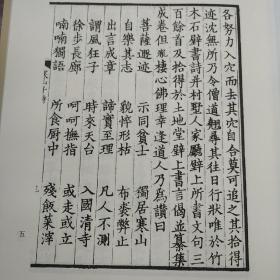 各努力入穴而去其穴自合莫可追之其拾得
迹沈無所乃令僧道翹尋其往日行狀唯於竹
木石壁書詩并村墅人家廳壁上所書文句三
百餘首及拾得於土地堂壁上書言偈並纂集
成卷但胤棲心佛理幸逢道人乃為讚曰
菩薩遯迹 示同貧士 獨居寒山
自樂其志 貌悴形枯 布裘弊止
出言成章 諦實至理 凡人不測
謂風狂子 時來天台 入國清寺
徐步長廊 呵呵撫指 或走或立
喃喃獨語 所食厨中 殘飯菜滓
五